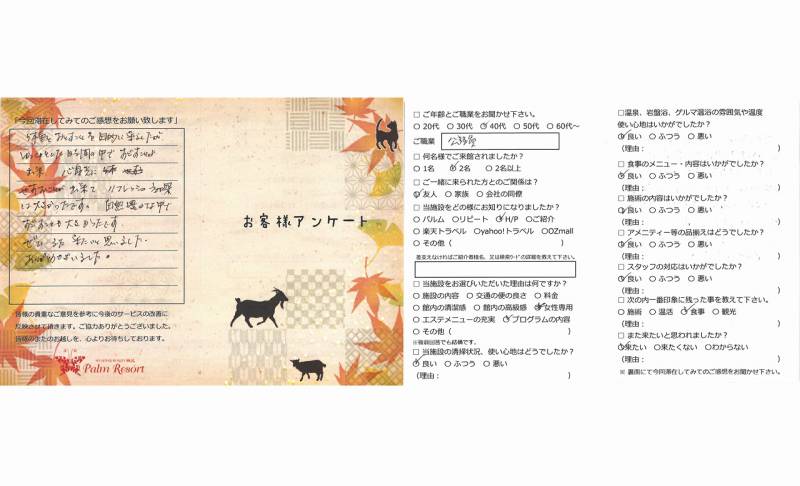 「今回滞在してみてのご感想をお願い致します」
を目的に来ましたが
出来
出来て リフレッシュ
は大きかったです。
ぜひ また 来たいと思いました。
ありがとうございました。
皆様の貴重なご意見を参考に今後のサービスの改善に
反映させて頂きます。ご協力ありがとうございました。
皆様のまたのお越しを、心よりお待ちしております。
Palm Resort
お客様アンケート
□ ご年齢とご職業をお聞かせ下さい。
○ 20代 ○ 30代 ○ 40代 ○ 50代 ○ 60代~
ご職業 公務員
□ 何名様でご来館されましたか?
○ 1名 ○ 2名 ○ 2名以上
□ ご一緒に来られた方とのご関係は?
○ 友人 ○ 家族 ○ 会社の同僚
□ 当施設をどの様にお知りになりましたか?
○ パルム ○リピート ○ H/P ○ご紹介
○ 楽天トラベル ○yahoo!トラベル ○OZmall
○ その他(
差支えなければご紹介者様名、又は検索ワードの詳細を教えて下さい。
□ 当施設をお選びいただいた理由は何ですか?
○ 施設の内容 ○ 交通の便の良さ ○ 料金
○ 館内の清潔感 ○ 館内の高級感 ○女性専用
○ エステメニューの充実 ○プログラムの内容
○ その他( )
※複数回答でも結構です。
□ 当施設の清掃状況、使い心地はどうでしたか?
○ 良い ○ ふつう ○ 悪い
(理由: )
□温泉、岩盤浴、ゲルマ温浴の雰囲気や温度
使い心地はいかがでしたか?
○ 良い ○ ふつう ○ 悪い
(理由: )
□ 食事のメニュー・内容はいかがでしたか?
○ 良い ○ ふつう ○ 悪い
(理由: )
□ 施術の内容はいかがでしたか?
○ 良い ○ ふつう ○ 悪い
(理由: )
□ アメニティー等の品揃えはどうでしたか?
○ 良い ○ ふつう ○ 悪い
(理由: )
□ スタッフの対応はいかがでしたか?
○ 良い ○ ふつう ○ 悪い
(理由: )
□ 次の内一番印象に残った事を教えて下さい。
○ 施術 ○ 温活 ○ 食事 ○ 観光
□ また来たいと思われましたか?
○来たい ○来たくない ○わからない
(理由: )
※ 裏面にて今回滞在してみてのご感想をお聞かせ下さい。